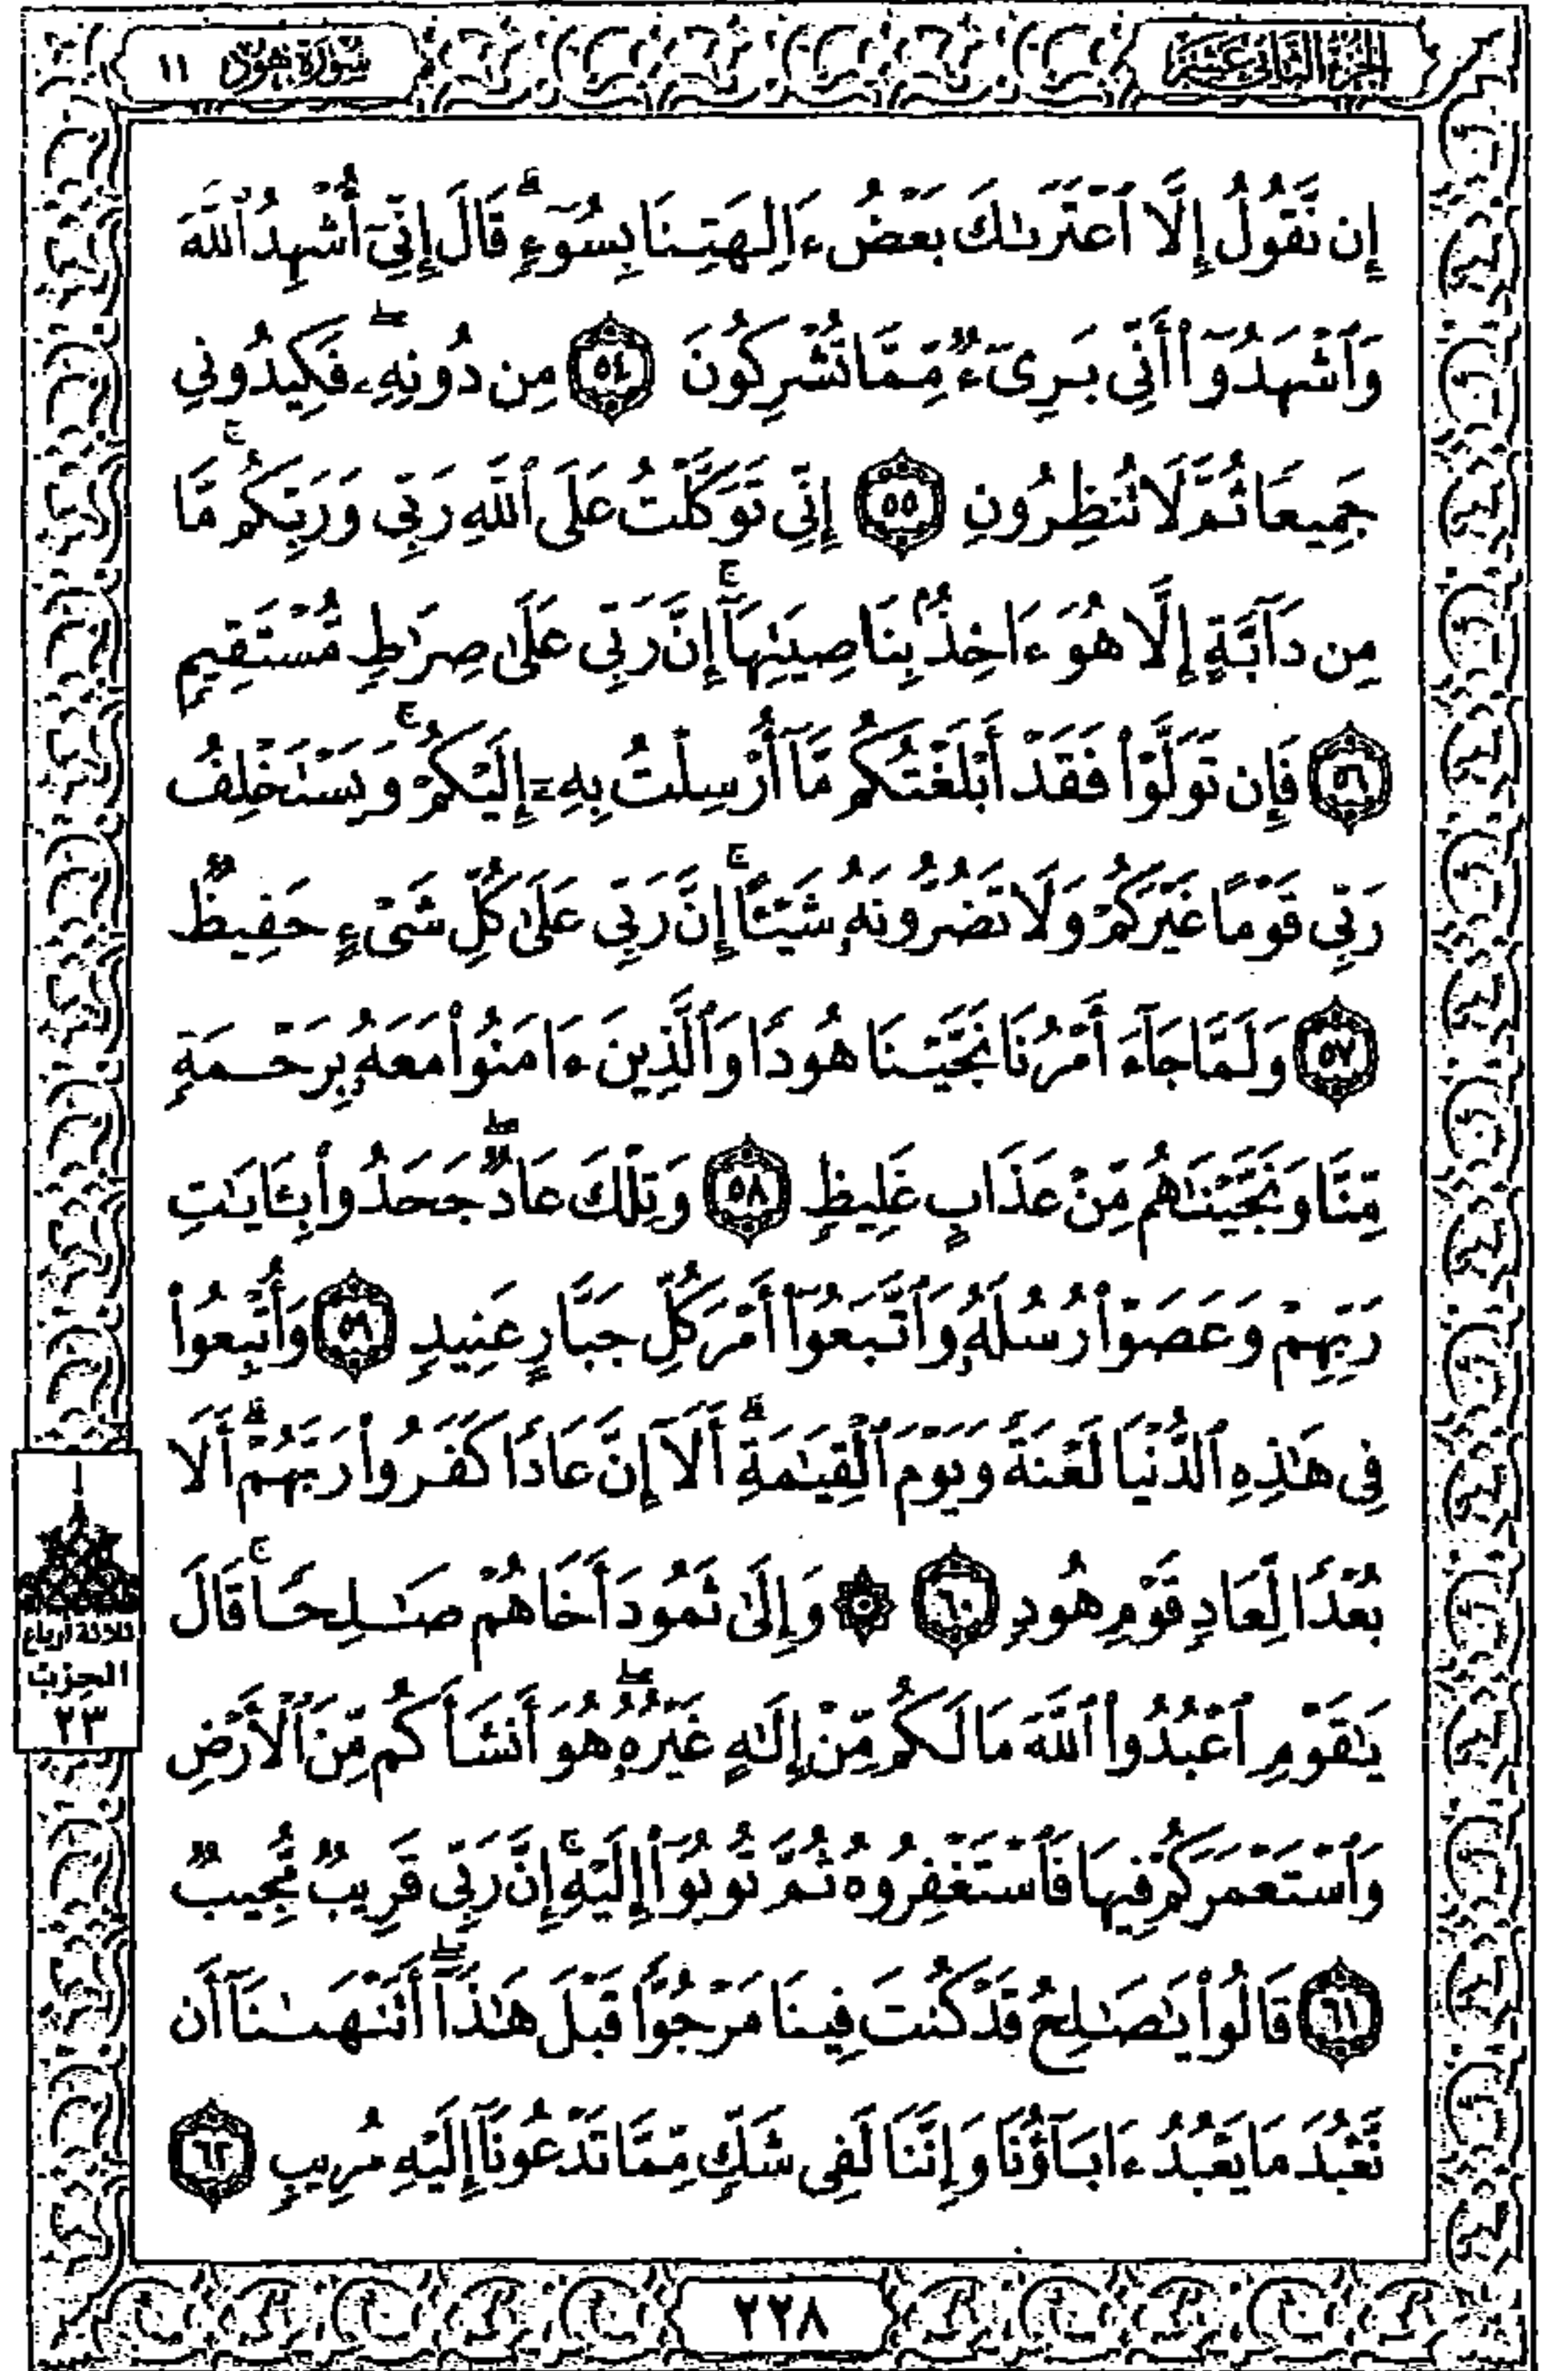 الجزء الثاني عشر
سورة هود ١١
إِن نَّقُولُ إِلَّا ٱعْتَرَىٰكَ بَعْضُ ءَالِهَتِنَا بِسُوٓءٍ ۗ قَالَ إِنِّىٓ أُشْهِدُ ٱللَّهَ
وَٱشْهَدُوٓا۟ أَنِّى بَرِىٓءٌ مِّمَّا تُشْرِكُونَ ٥٤ مِن دُونِهِۦ ۖ فَكِيدُونِى
جَمِيعًا ثُمَّ لَا تُنظِرُونِ ٥٥ إِنِّى تَوَكَّلْتُ عَلَى ٱللَّهِ رَبِّى وَرَبِّكُم ۚ مَّا
مِن دَآبَّةٍ إِلَّا هُوَ ءَاخِذٌۢ بِنَاصِيَتِهَآ ۚ إِنَّ رَبِّى عَلَىٰ صِرَٰطٍ مُّسْتَقِيمٍ
٥٦ فَإِن تَوَلَّوْا۟ فَقَدْ أَبْلَغْتُكُم مَّآ أُرْسِلْتُ بِهِۦٓ إِلَيْكُمْ ۚ وَيَسْتَخْلِفُ
رَبِّى قَوْمًا غَيْرَكُمْ وَلَا تَضُرُّونَهُۥ شَيْـًٔا ۚ إِنَّ رَبِّى عَلَىٰ كُلِّ شَىْءٍ حَفِيظٌ
٥٧ وَلَمَّا جَآءَ أَمْرُنَا نَجَّيْنَا هُودًا وَٱلَّذِينَ ءَامَنُوا۟ مَعَهُۥ بِرَحْمَةٍ
مِّنَّا وَنَجَّيْنَٰهُم مِّنْ عَذَابٍ غَلِيظٍ ٥٨ وَتِلْكَ عَادٌ ۖ جَحَدُوا۟ بِـَٔايَٰتِ
رَبِّهِمْ وَعَصَوْا۟ رُسُلَهُۥ وَٱتَّبَعُوٓا۟ أَمْرَ كُلِّ جَبَّارٍ عَنِيدٍ ٥٩ وَأُتْبِعُوا۟
فِى هَٰذِهِ ٱلدُّنْيَا لَعْنَةً وَيَوْمَ ٱلْقِيَٰمَةِ ۗ أَلَآ إِنَّ عَادًا كَفَرُوا۟ رَبَّهُمْ ۗ أَلَا
بُعْدًا لِّعَادٍ قَوْمِ هُودٍ ٦٠ ۞ وَإِلَىٰ ثَمُودَ أَخَاهُمْ صَٰلِحًا ۚ قَالَ
يَٰقَوْمِ ٱعْبُدُوا۟ ٱللَّهَ مَا لَكُم مِّنْ إِلَٰهٍ غَيْرُهُۥ ۖ هُوَ أَنشَأَكُم مِّنَ ٱلْأَرْضِ
وَٱسْتَعْمَرَكُمْ فِيهَا فَٱسْتَغْفِرُوهُ ثُمَّ تُوبُوٓا۟ إِلَيْهِ ۚ إِنَّ رَبِّى قَرِيبٌ مُّجِيبٌ
٦١ قَالُوا۟ يَٰصَٰلِحُ قَدْ كُنتَ فِينَا مَرْجُوًّا قَبْلَ هَٰذَآ ۖ أَتَنْهَىٰنَآ أَن
نَّعْبُدَ مَا يَعْبُدُ ءَابَآؤُنَا وَإِنَّنَا لَفِى شَكٍّ مِّمَّا تَدْعُونَآ إِلَيْهِ مُرِيبٍ ٦٢
ثلاثة أرباع
الحزب
٢٣
٢٢٨